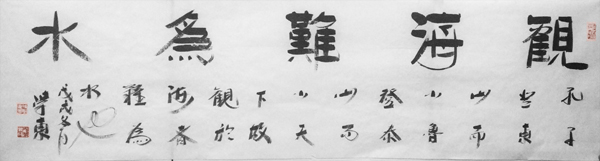 観海難為水
孔子
登東
山而
小魯
登泰
山而
小天
下故
観於
海者
難為
水也
戊戌
学東